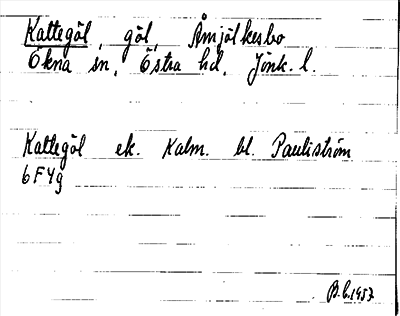 Kattegöl, göl, Åmjölkesbo
Ökna sn, Östra hd, Jönk. l.
Kattegöl ek. Kalm. bl. Pauliström
6F4g
B.L.1957